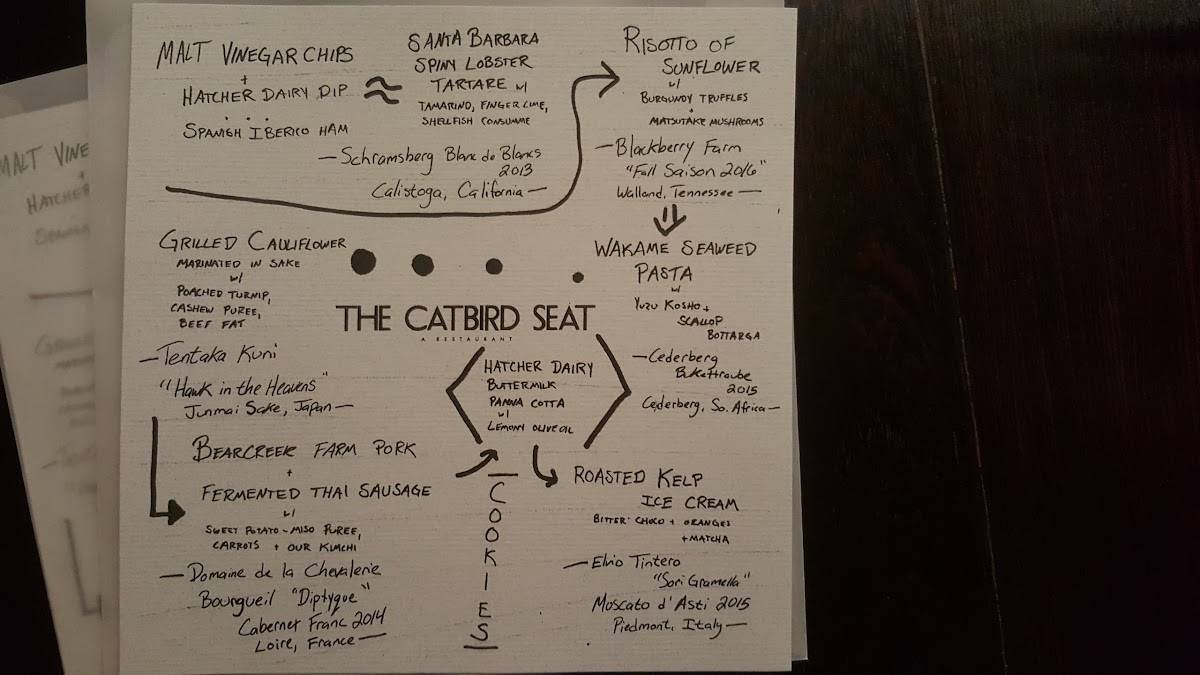 MALT VINEGAR CHIPS
+
HATCHER DAIRY DIP
SPANISH IBERICO HAM
≈
SANTA BARBARA
SPINY LOBSTER
TARTARE w/
TAMARIND, FINGER LIME,
SHELLFISH CONSUMME
—Schramsberg Blanc de Blancs
2013
Calistoga, California—
RISOTTO OF
SUNFLOWER
w/
BURGUNDY TRUFFLES
+
MATSUTAKE MUSHROOMS
—Blackberry Farm
"Fall Saison 2016"
Walland, Tennessee—
WAKAME SEAWEED
PASTA
w/
YUZU KOSHO +
SCALLOP
BOTTARGA
—Cederberg
Bukettraube
2015
Cederberg, So. Africa—
GRILLED CAULIFLOWER
MARINATED IN SAKE
w/
POACHED TURNIP,
CASHEW PUREE,
BEEF FAT
—Tentaka Kuni
"Hawk in the Heavens"
Junmai Sake, Japan—
THE CATBIRD SEAT
A RESTAURANT
BEARCREEK FARM PORK
+
FERMENTED THAI SAUSAGE
w/
SWEET POTATO-MISO PUREE,
CARROTS + OUR KIMCHI
—Domaine de la Chevalerie
Bourgueil "Diptyque"
Cabernet Franc 2014
Loire, France—
HATCHER DAIRY
BUTTERMILK
PANNA COTTA
w/
LEMONY OLIVE OIL
ROASTED KELP
ICE CREAM
BITTER CHOCO + ORANGES
+ MATCHA
—Elvio Tintero
"Sori Gramella"
Moscato d'Asti 2015
Piedmont, Italy—
COOKIES
MALT VINE
HATCHER